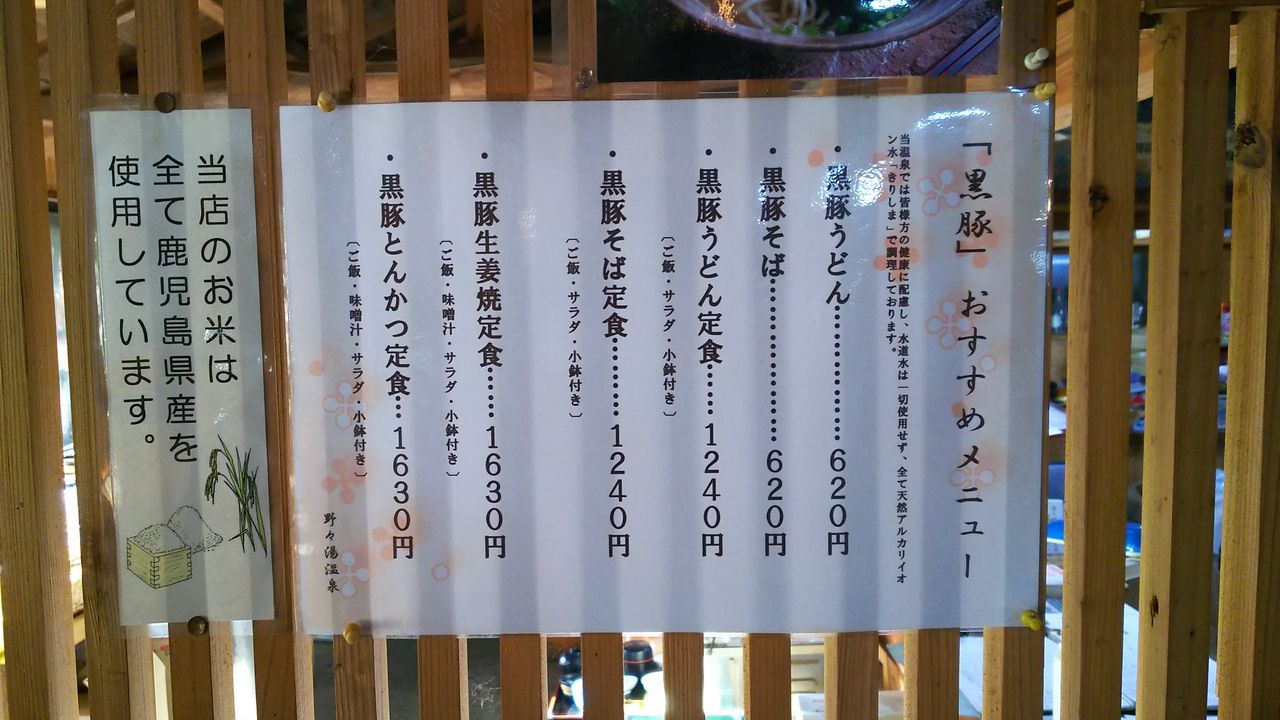 「黒豚」おすすめメニュー
当温泉では皆様方の健康に配慮し、水道水は一切使用せず、全て天然アルカリイオ
ン水「きりしま」で調理しております。
・黒豚うどん……………620円
・黒豚そば………………620円
・黒豚うどん定食……1240円
（ご飯・サラダ・小鉢付き）
・黒豚そば定食………1240円
（ご飯・サラダ・小鉢付き）
・黒豚生姜焼定食……1630円
（ご飯・味噌汁・サラダ・小鉢付き）
・黒豚とんかつ定食…1630円
（ご飯・味噌汁・サラダ・小鉢付き）
野々湯温泉
当店のお米は
全て鹿児島県産を
使用しています。